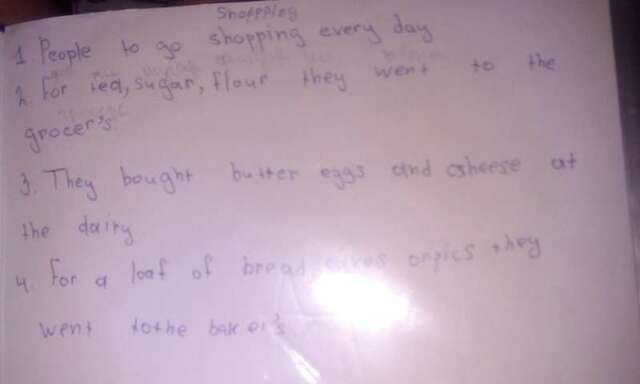 Shoppping
1. People to go shopping every day
2. For tea, sugar, flour they went to the
grocer's
3. They bought butter eggs and csheese at
the dairy
4. For a loaf of bread they
went tothe baker's